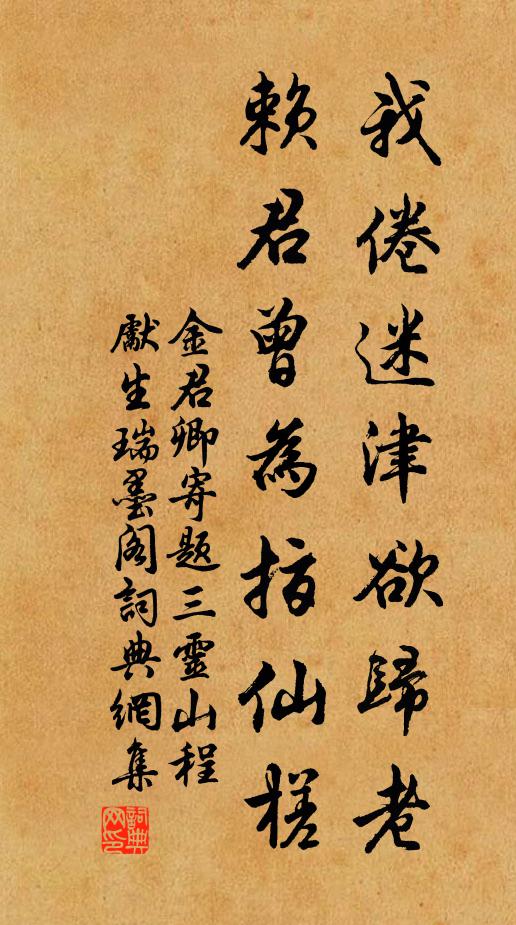 我倦迷津欲歸老
賴君曾為指仙槎
金君卿寄題三靈山程
獻生瑞墨閣詞典網集
詞典网印